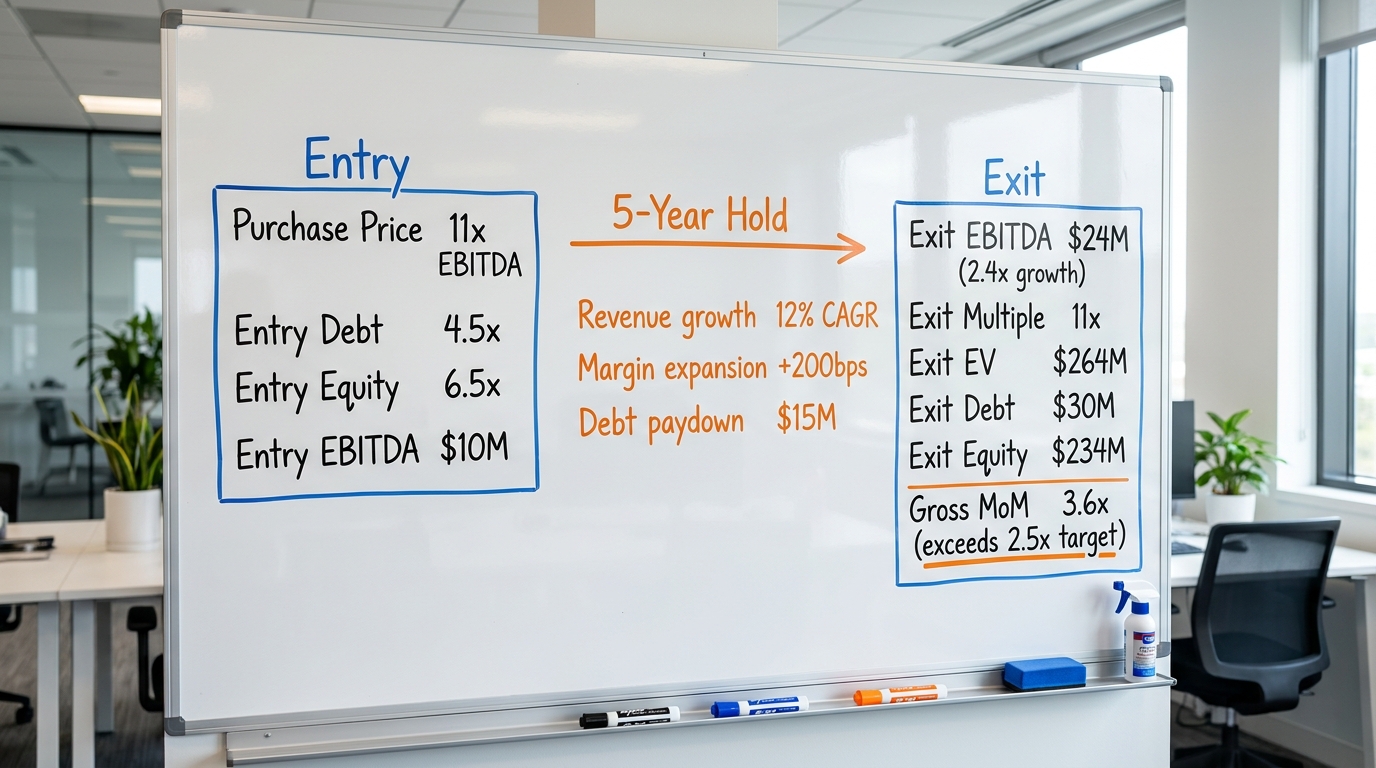 Entry
Purchase Price 11x
EBITDA
Entry Debt 4.5x
Entry Equity 6.5x
Entry EBITDA $10M
5-Year Hold
Revenue growth 12% CAGR
Margin expansion +200bps
Debt paydown $15M
Exit
Exit EBITDA $24M
(2.4x growth)
Exit Multiple 11x
Exit EV $264M
Exit Debt $30M
Exit Equity $234M
Gross MoM 3.6x
(exceeds 2.5x target)